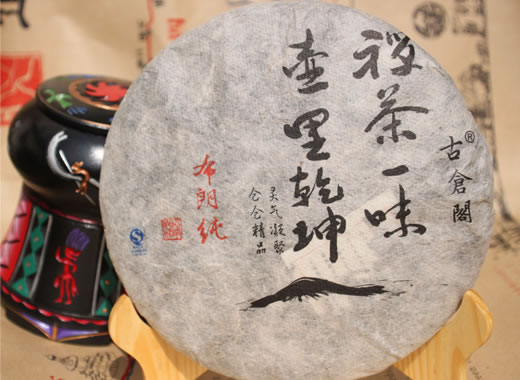 古倉閣®
禅茶一味
壶里乾坤
灵气凝聚
仓仓精品
布朗纯